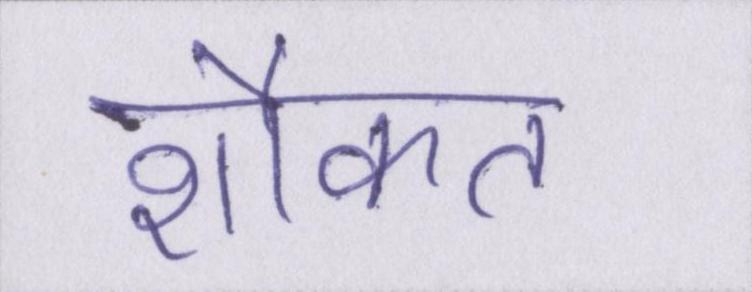 शौकत